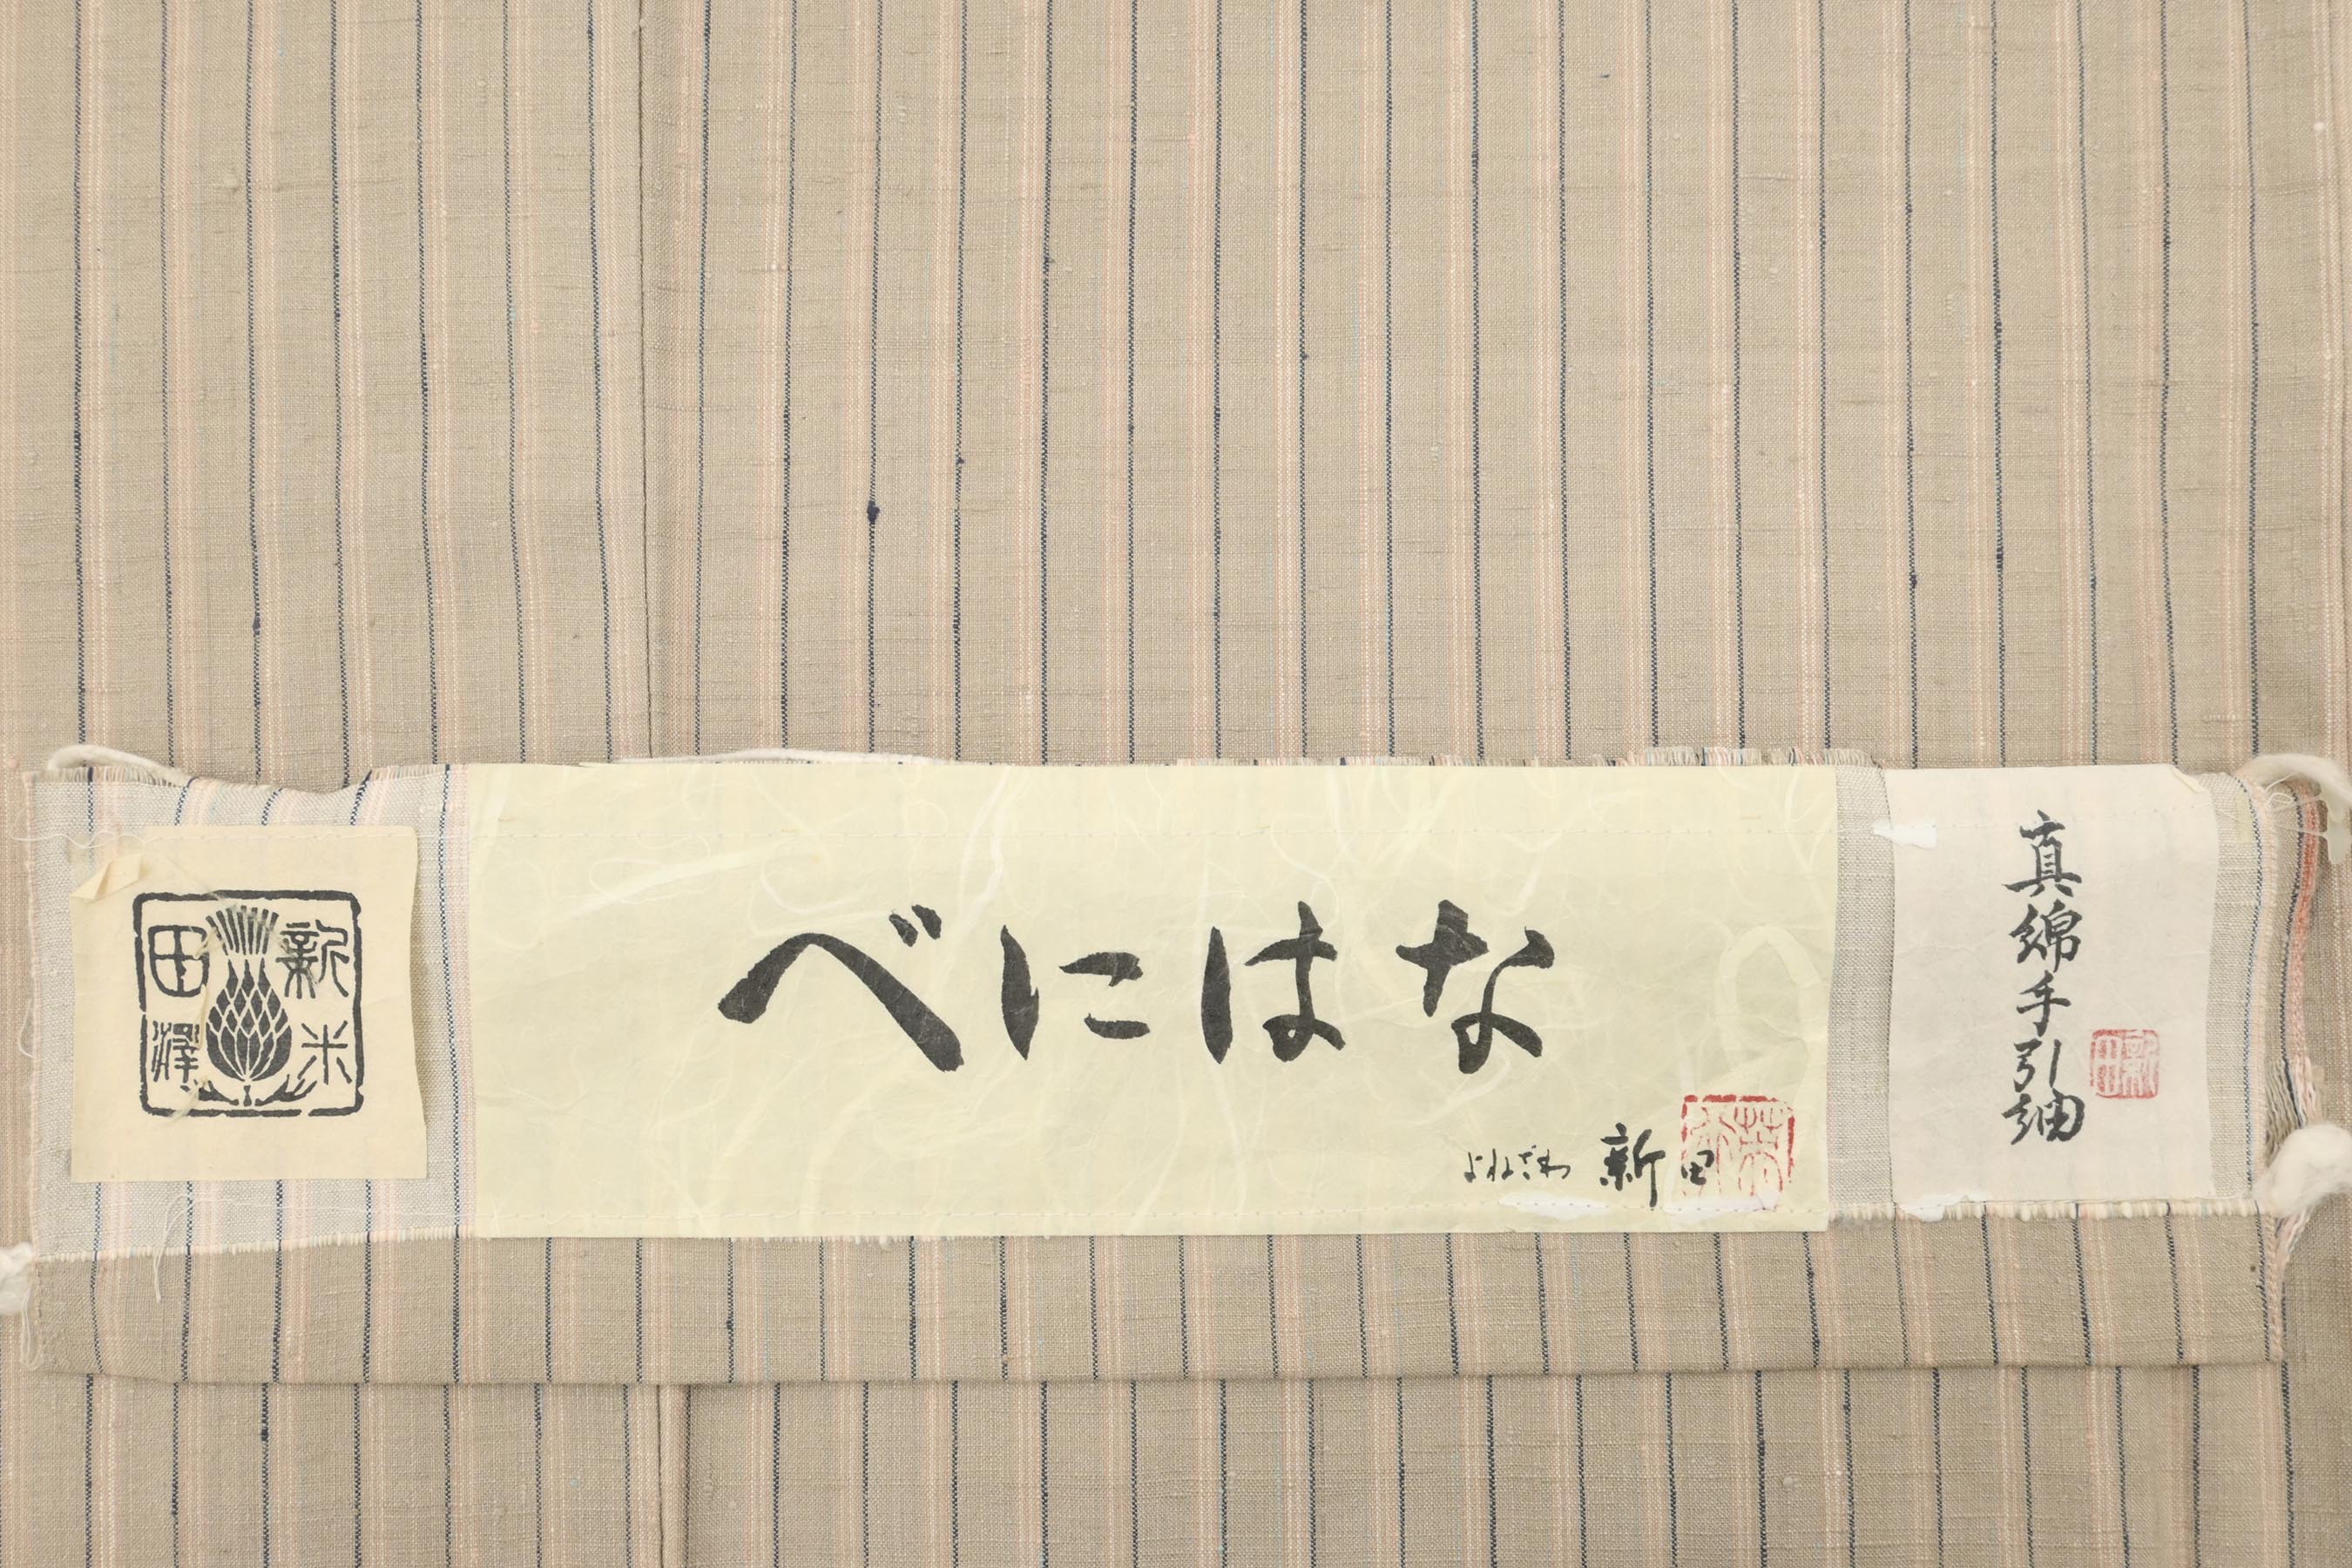 新田
米澤
べにはな
よねざわ 新田
真綿手引紬
新田